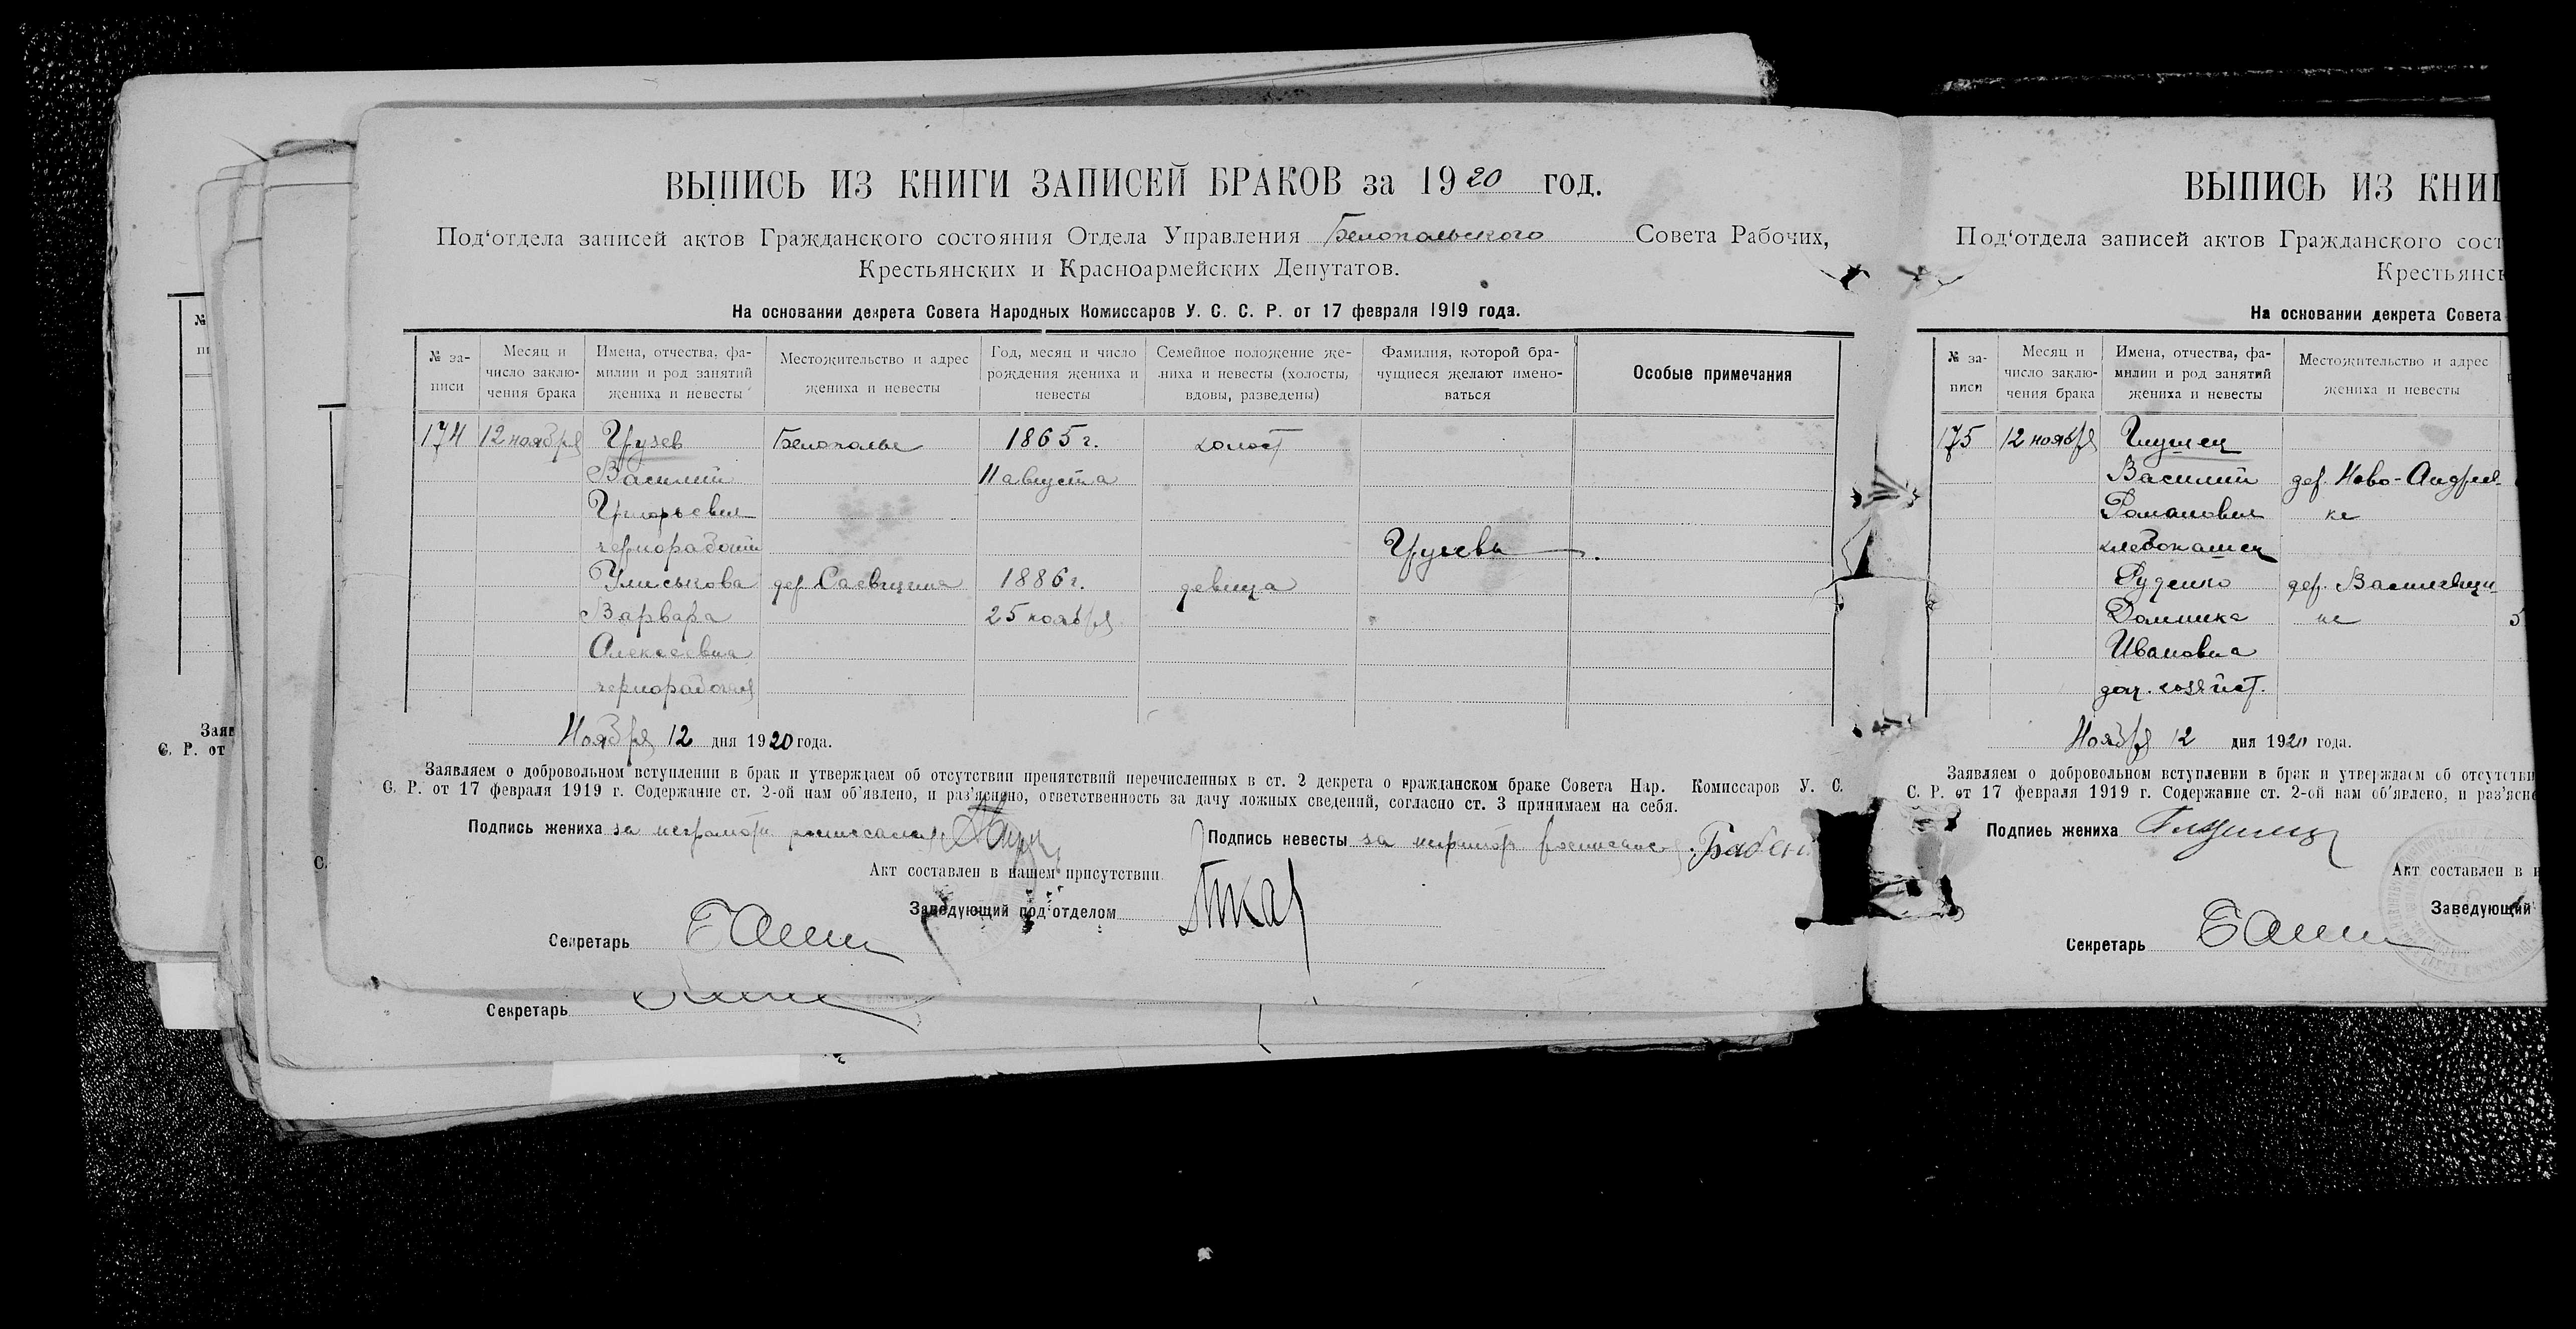 ВЫПИСЬ ИЗ КНИГИ ЗАПИСЕЙ БРАКОВ за 1920 год.
Под‘отдела записей актов Гражданского состояния Отдела Управления Белопольского Совета Рабочих,
Крестьянских и Красноармейских Депутатов.
На основании декрета Совета Народных Комиссаров У. С. С. Р. от 17 февраля 1919 года.
№ за-
писи
Месяц и
число заклю-
чения брака
Имена, отчества, фа-
милии и род занятий
жениха и невесты
Местожительство и адрес
жениха и невесты
Год, месяц и число
рождения жениха и
невесты
Семейное положение же-
ниха и невесты (холосты,
вдовы, разведены)
Фамилия, которой бра-
чущиеся желают имено-
ваться
Особые примечания
174 12 ноября Гузев Белополье 1865 г. холост
Василий 11 августа
Григорьевич
чернорабочий
Гузевы
дер. 1886 г. девица
Варвара 25 ноября
Алексеевна
чернорабочая
Ноября 12 дня 1920 года.
Заявляем о добровольном вступлении в брак и утверждаем об отсутствии препятствий перечисленных в ст. 2 декрета о гражданском браке Совета Нар. Комиссаров У. С.
С. Р. от 17 февраля 1919 г. Содержание ст. 2-ой нам об‘явлено, и раз‘яснено, ответственность за дачу ложных сведений, согласно ст. 3 принимаем на себя.
Подпись жениха за неграмотн
Подпись невесты за неграмотн
Акт составлен в нашем присутствии.
Заведующий под‘отделом
Секретарь
Секретарь
ВЫПИСЬ ИЗ КНИГ
Под‘отдела записей актов Гражданского сост
Крестьянск
На основании декрета Совета
№ за-
писи
Месяц и
число заклю-
чения брака
Имена, отчества, фа-
милии и род занятий
жениха и невесты
Местожительство и адрес
жениха и невесты
175 12 ноября Глушец
Василий дер. Ново-Андреев-
Романович ке
хлебопашец
Руденко дер. Василевщи-
Домника не 5
Ивановна
дом. хозяйст.
Ноября 12 дня 1920 года.
Заявляем о добровольном вступлении в брак и утверждаем об отсутстви
С. Р. от 17 февраля 1919 г. Содержание ст. 2-ой нам об‘явлено, и раз‘ясне
Подпись жениха Глушец
Акт составлен в н
Заведующий
Секретарь
№
Заяв
С. Р. от
С.